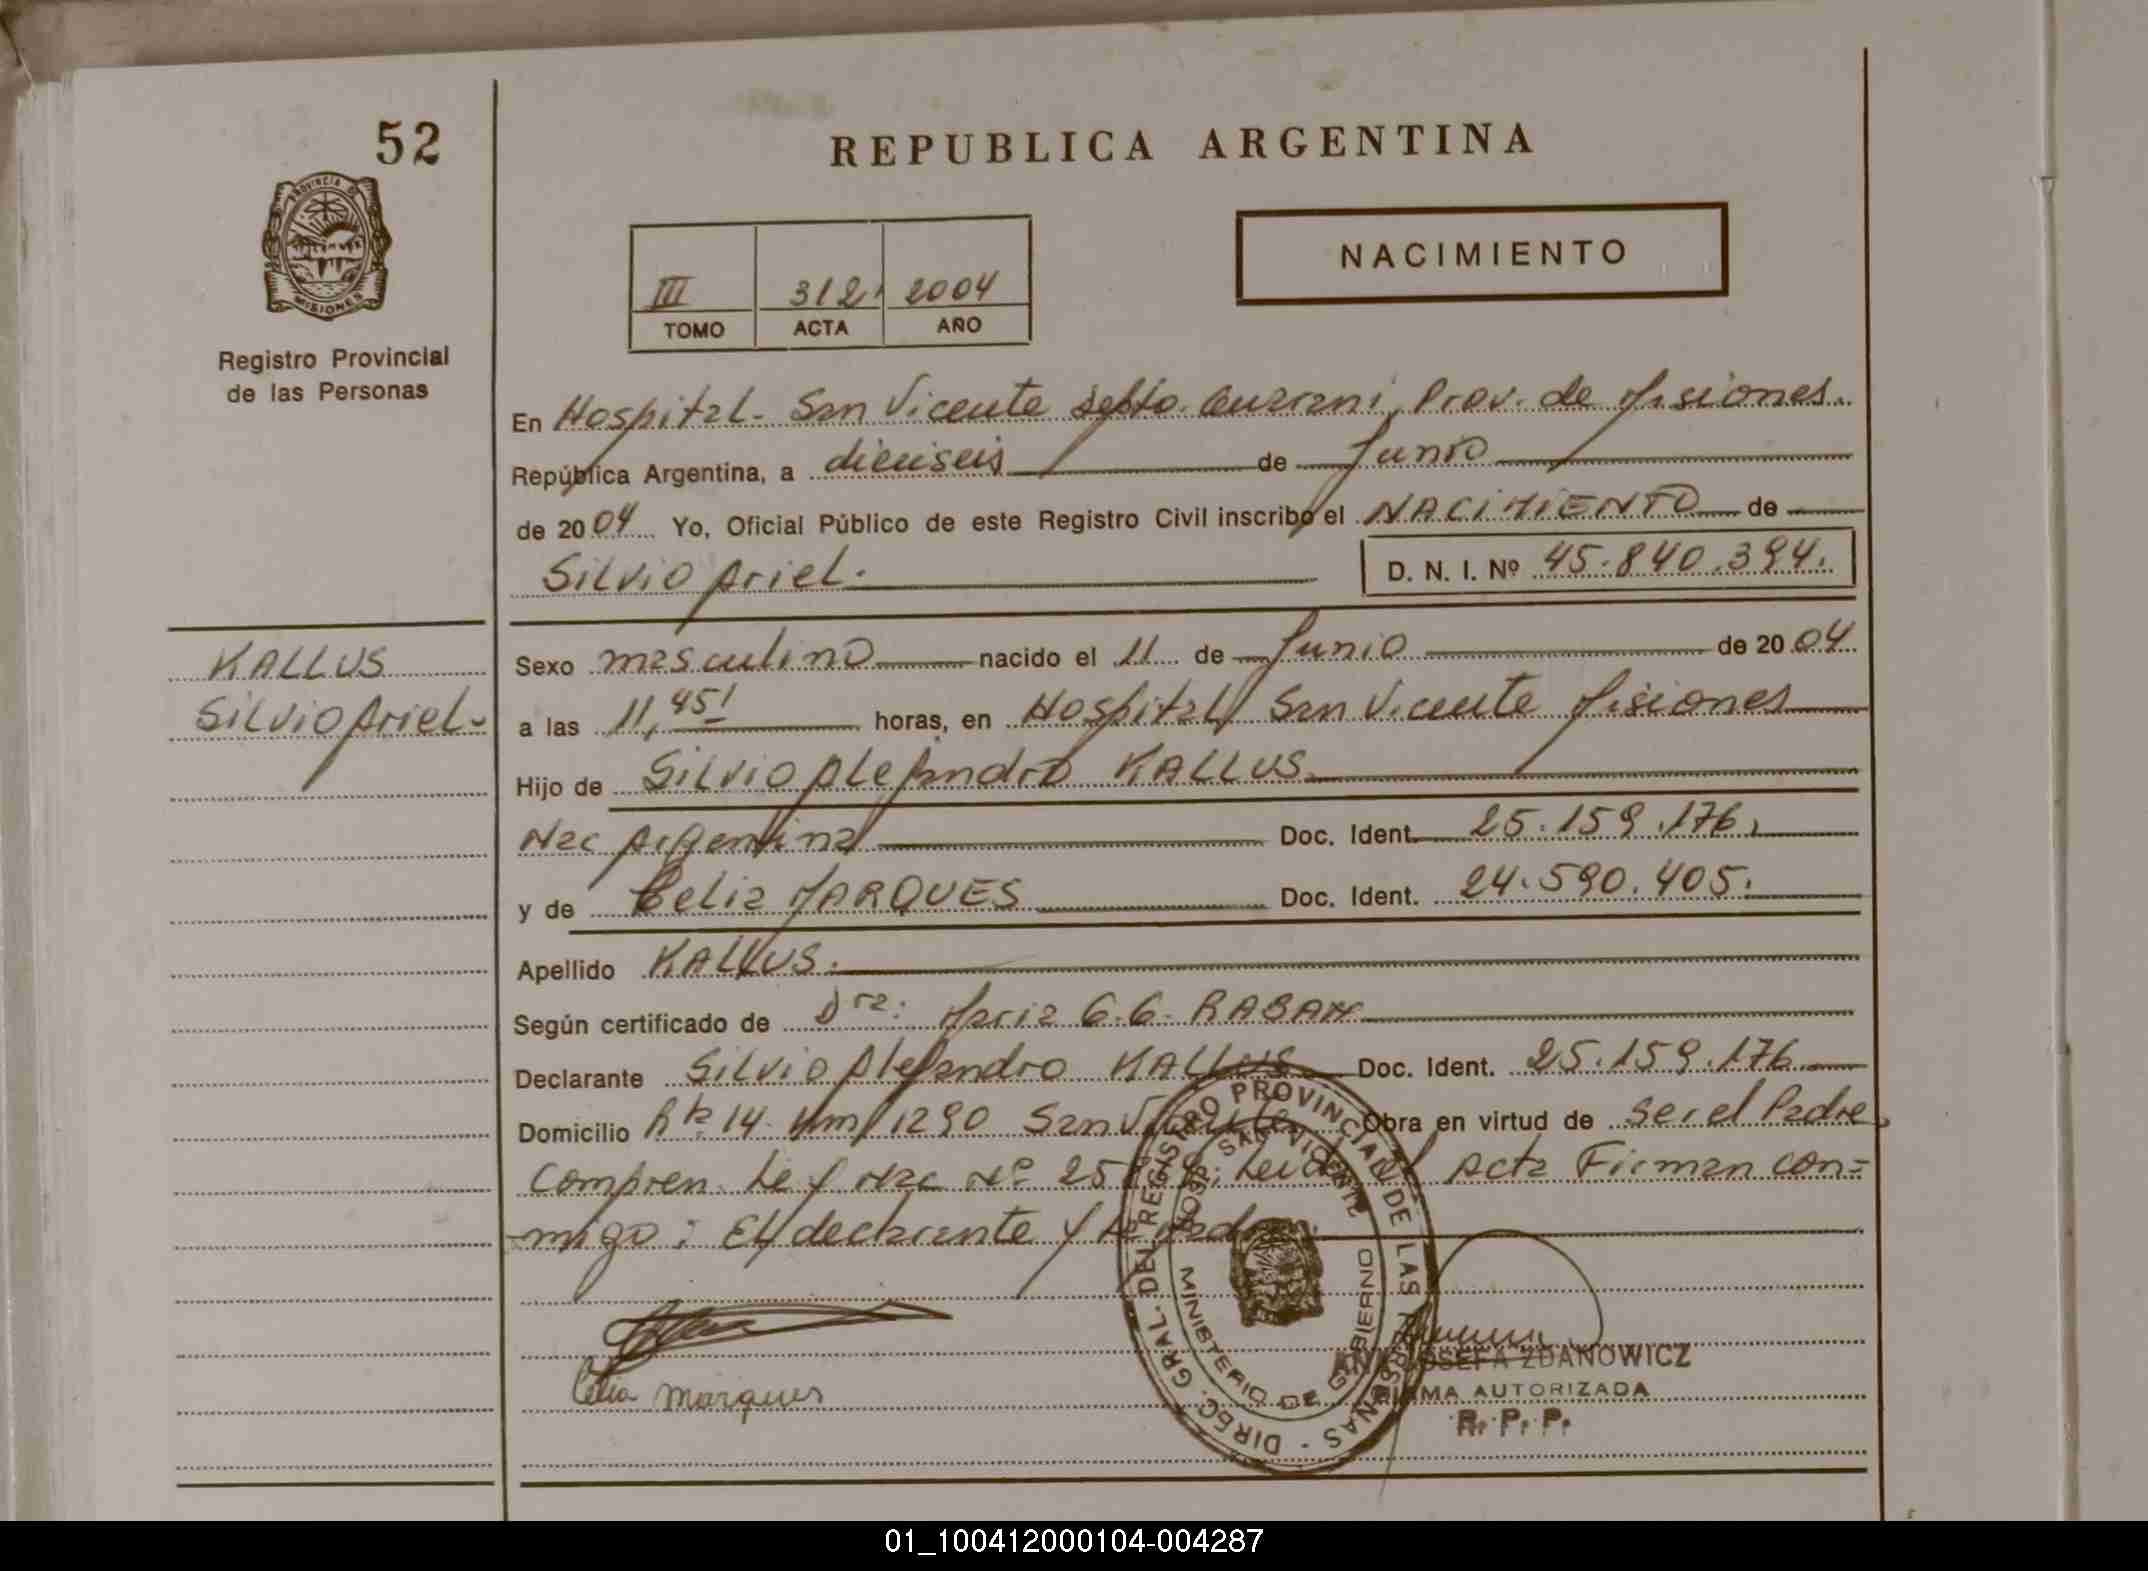 52
REPUBLICA ARGENTINA
PROVINCIA DE
MISIONES
NACIMIENTO
III 312 2004
TOMO ACTA AÑO
Registro Provincial
de las Personas
En Hospital - San Vicente Depto. Guarani, Prov. de Misiones.
República Argentina, a dieciseis de Junio
de 2004 Yo, Oficial Público de este Registro Civil inscribo el NACIMIENTO de
Silvio Ariel.
D. N. I. Nº 45.840.394.
KALLUS
Silvio Ariel-
Sexo masculino nacido el 11 de Junio de 2004
a las 11,45' horas, en Hospital San Vicente Misiones
Hijo de Silvio Alejandro KALLUS
Nac Argentina Doc. Ident. 25.159.176.
y de Celia MARQUES Doc. Ident. 24.590.405.
Apellido KALLUS.
Según certificado de Dra: Maria G.G. RABAN
Declarante Silvio Alejandro KALLUS Doc. Ident. 25.159.176
Domicilio Rta 14 Km 1290 San Vicente Obra en virtud de ser el Padre
Compren. de Nac Nº Leida el Acta Firman con=
migo: El declarante y la Madre.
Celia Marques
DIREC. GRAL. DEL REGISTRO PROVINCIAL DE LAS PERSONAS
HOSP. SAN VICENTE
MINISTERIO DE GOBIERNO
ANA JOSEFA ZDANOWICZ
FIRMA AUTORIZADA
R. P. P.
01_100412000104-004287